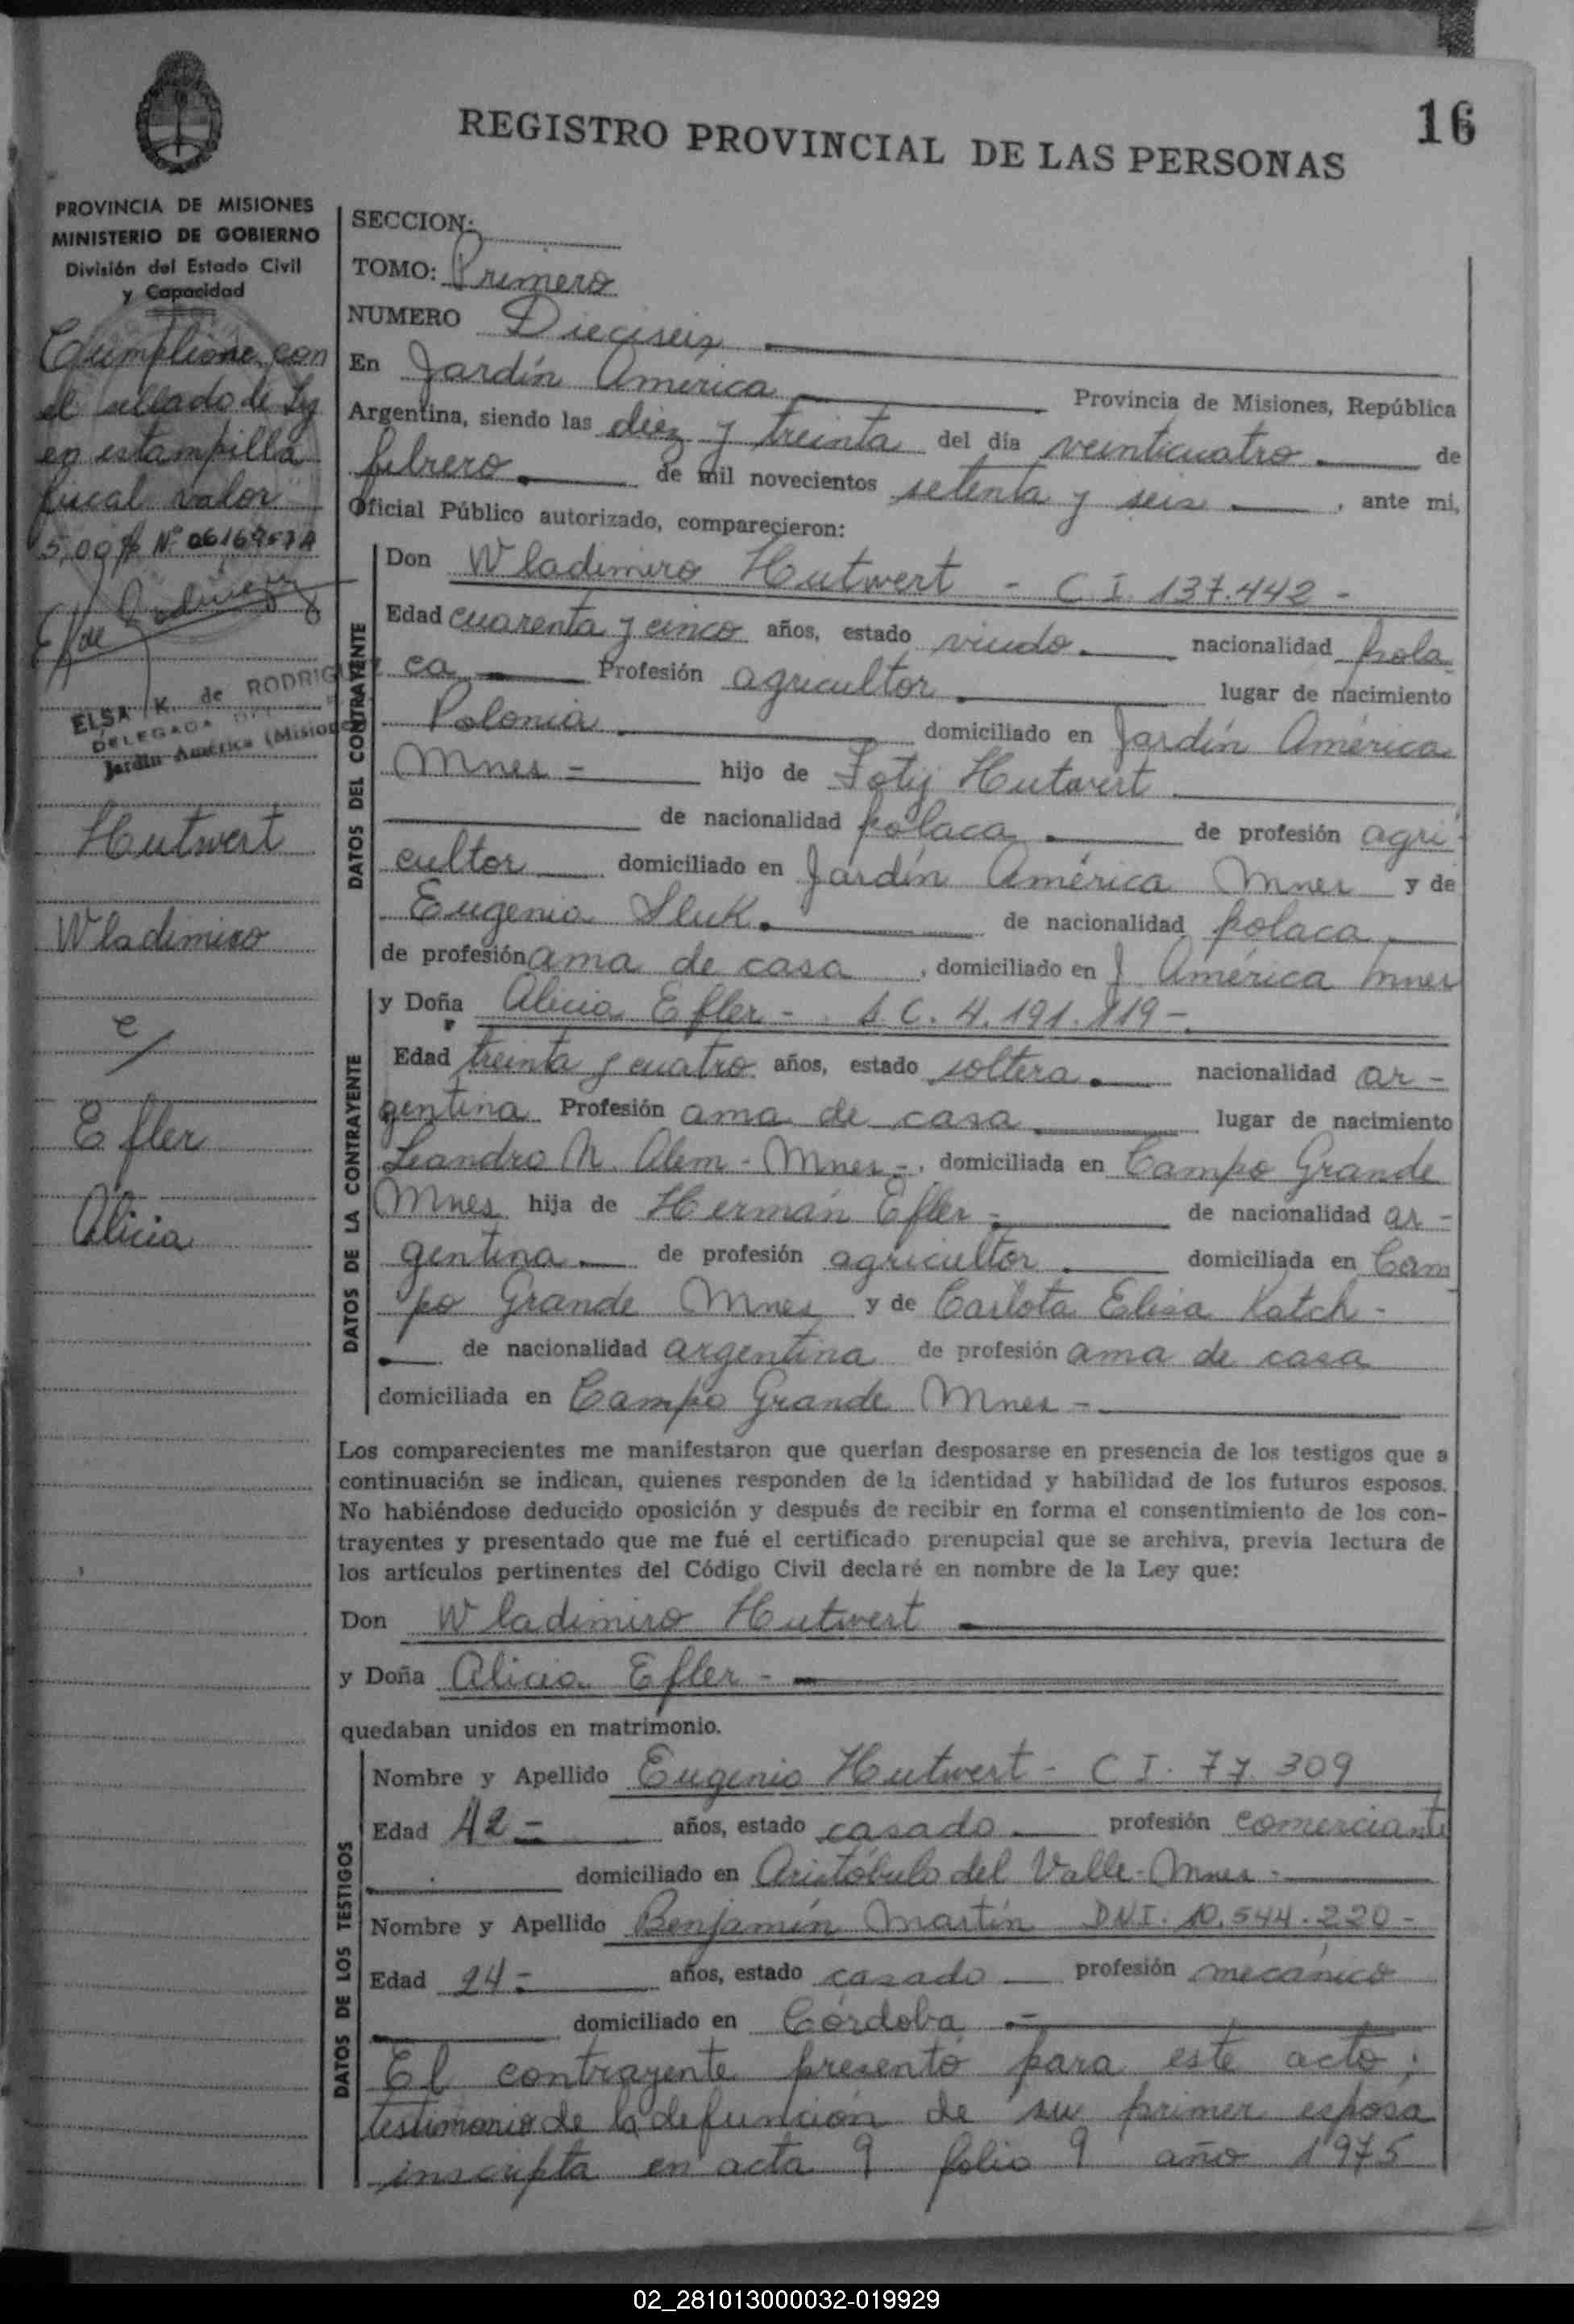 16
REGISTRO PROVINCIAL DE LAS PERSONAS
PROVINCIA DE MISIONES
MINISTERIO DE GOBIERNO
División del Estado Civil
y Capacidad
Cumplióse con
el sellado de Ley
en estampilla
fiscal valor
5,00 $ Nº
ELSA K. de RODRIGUEZ
DELEGADA
Jardín América (Misiones)
Hutwert
Wladimiro
c/
Efler
Alicia
SECCION:
TOMO: Primero
NUMERO Dieciseis
En Jardín America Provincia de Misiones, República
Argentina, siendo las diez y treinta del día veinticuatro de
febrero de mil novecientos setenta y seis, ante mi,
Oficial Público autorizado, comparecieron:
DATOS DEL CONTRAYENTE
Don Wladimiro Hutwert - C I. 137.442 -
Edad cuarenta y cinco años, estado viudo nacionalidad pola
ca Profesión agricultor lugar de nacimiento
Polonia domiciliado en Jardín América
Mnes - hijo de Fotij Hutwert
de nacionalidad polaca de profesión agri-
cultor domiciliado en Jardín América Mnes y de
Eugenia Sluk de nacionalidad polaca
de profesión ama de casa, domiciliado en J. América Mnes
DATOS DE LA CONTRAYENTE
y Doña Alicia Efler - L.C. 4.191.119 -
Edad treinta y cuatro años, estado soltera nacionalidad ar-
gentina Profesión ama de casa lugar de nacimiento
Leandro N. Alem - Mnes -, domiciliada en Campo Grande
Mnes hija de Hermán Efler - de nacionalidad ar-
gentina de profesión agricultor domiciliada en Cam
po Grande Mnes y de Carlota Elisa Katch -
de nacionalidad argentina de profesión ama de casa
domiciliada en Campo Grande Mnes -
Los comparecientes me manifestaron que querían desposarse en presencia de los testigos que a
continuación se indican, quienes responden de la identidad y habilidad de los futuros esposos.
No habiéndose deducido oposición y después de recibir en forma el consentimiento de los con-
trayentes y presentado que me fué el certificado prenupcial que se archiva, previa lectura de
los artículos pertinentes del Código Civil declaré en nombre de la Ley que:
Don Wladimiro Hutwert
y Doña Alicia Efler -
quedaban unidos en matrimonio.
DATOS DE LOS TESTIGOS
Nombre y Apellido Eugenio Hutwert - C I. 77.309
Edad 42 - años, estado casado profesión comerciante
domiciliado en Aristóbulo del Valle - Mnes -
Nombre y Apellido Benjamín Martín DNI. 10.544.220 -
Edad 24 - años, estado casado profesión mecánico
domiciliado en Córdoba -
El contrayente presentó para este acto:
testimonio de la defunción de su primer esposa
inscripta en acta 9 folio 9 año 1975
02_281013000032-019929